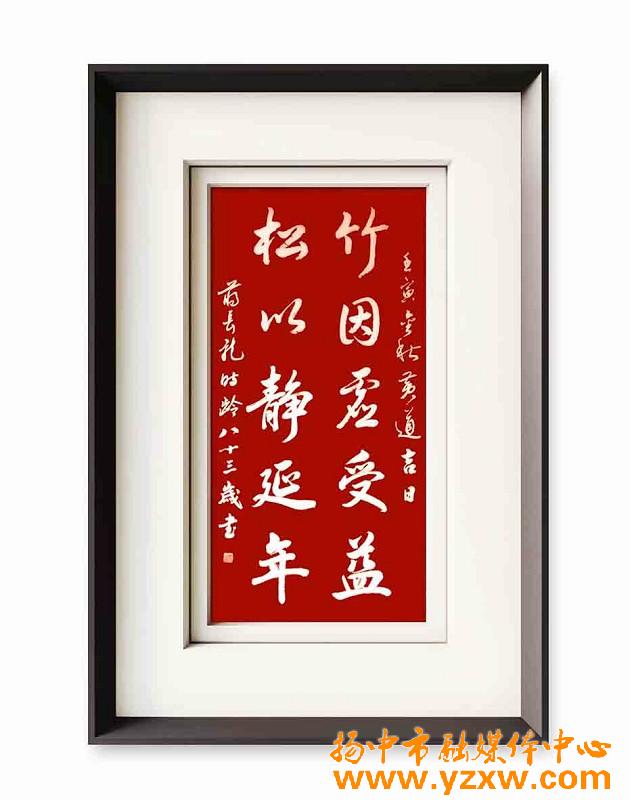 壬寅金秋黄道吉日
竹因虚受益
松以静延年
蒋长龙时龄八十三岁书
扬中市融媒体中心
www.yzxw.com